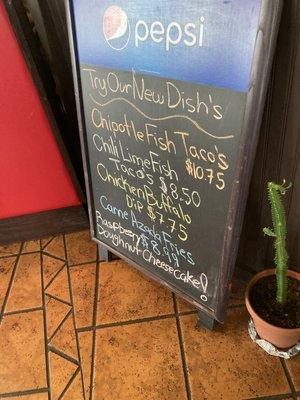 pepsi
Try Our New Dish's
Chipotle Fish Tacos
$10.75
Chili Lime Fish
Taco's $8.50
Chicken Buffalo
Dip $7.75
Carne Asada Fries
$8.99
Raspberry
Doughnut Cheesecake!